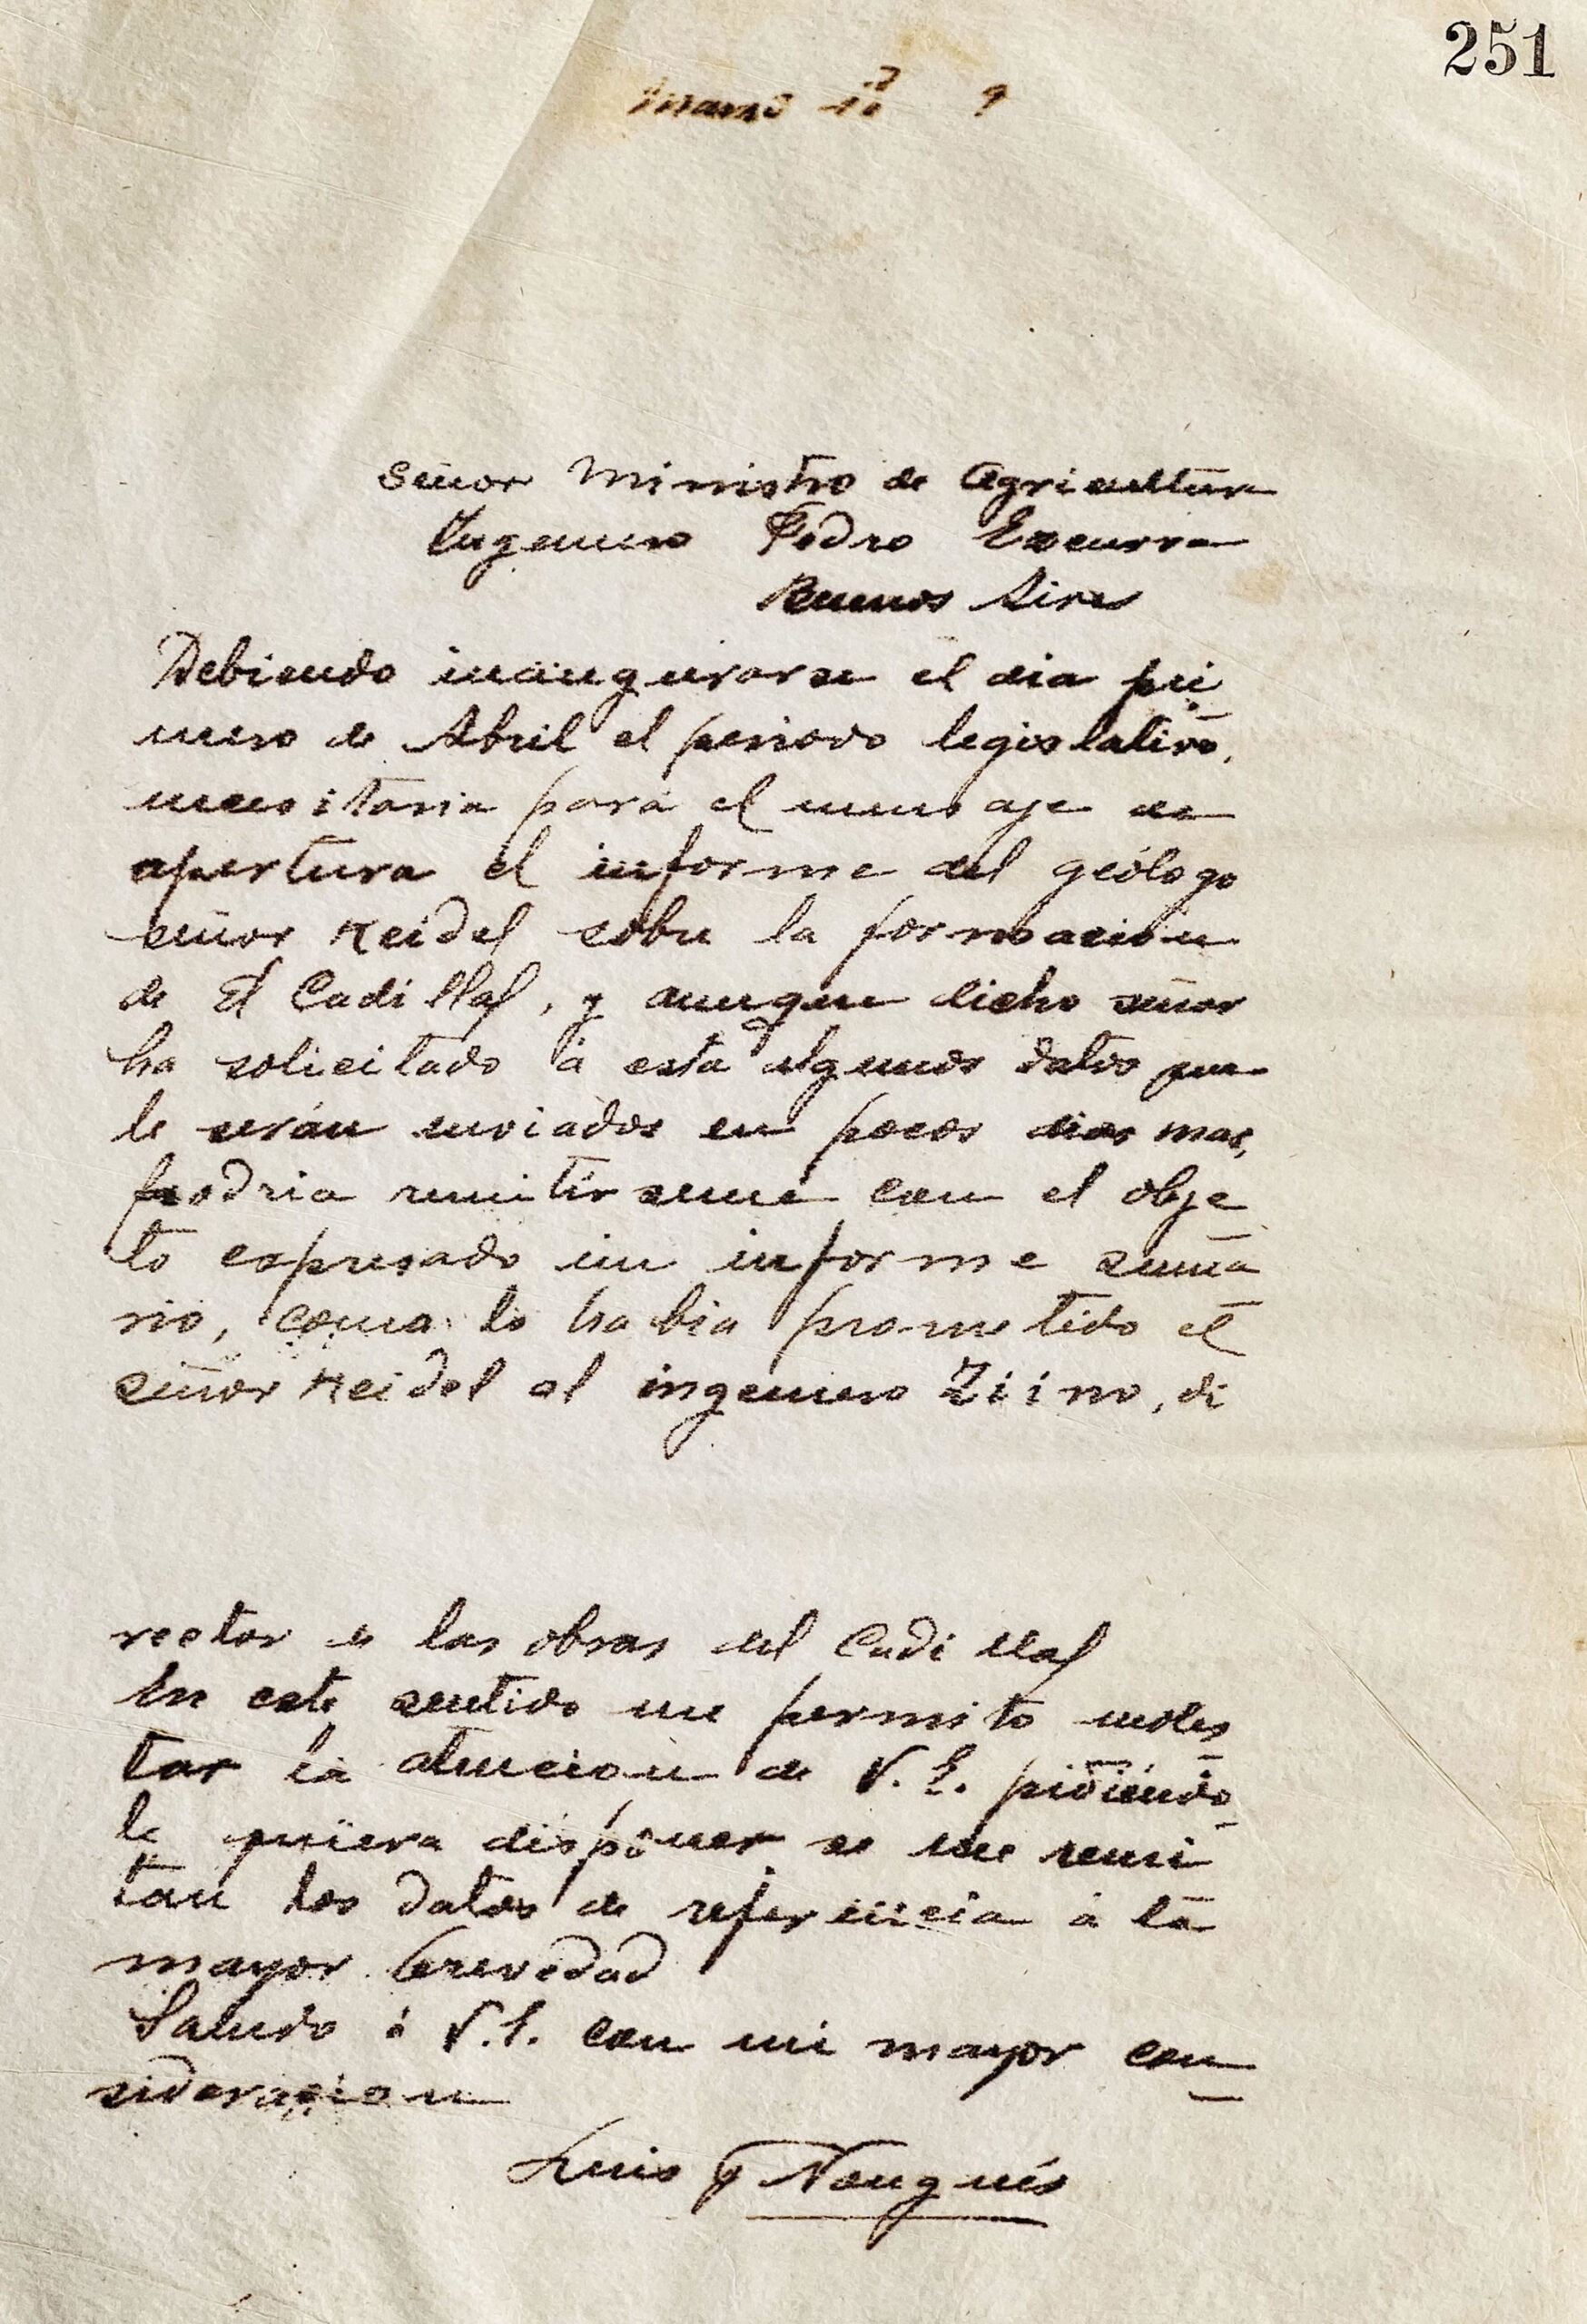 251
Marzo 10 9
Señor Ministro de Agricultura
Ingeniero Pedro Ezcurra
Buenos Aires
Debiendo inaugurarse el dia pri
mero de Abril el periodo legislativo,
necesitaria para el mensaje de
apertura el informe del geólogo
señor Keidel sobre la formacion
de El Cadillal, y aunque dicho señor
ha solicitado á esta algunos datos que
le serán enviados en pocos dias mas,
podria remitirseme con el obje
to expresado un informe suma
rio, como lo habia prometido el
señor Keidel al ingeniero Ziino, di
rector de las obras del Cadillal
En este sentido me permito moles
tar la atencion de V. E. pidiendo
le quiera disponer se me remi
tan los datos de referencia á la
mayor brevedad
Saludo á V.E. con mi mayor con
sideracion
Luis F Nougués